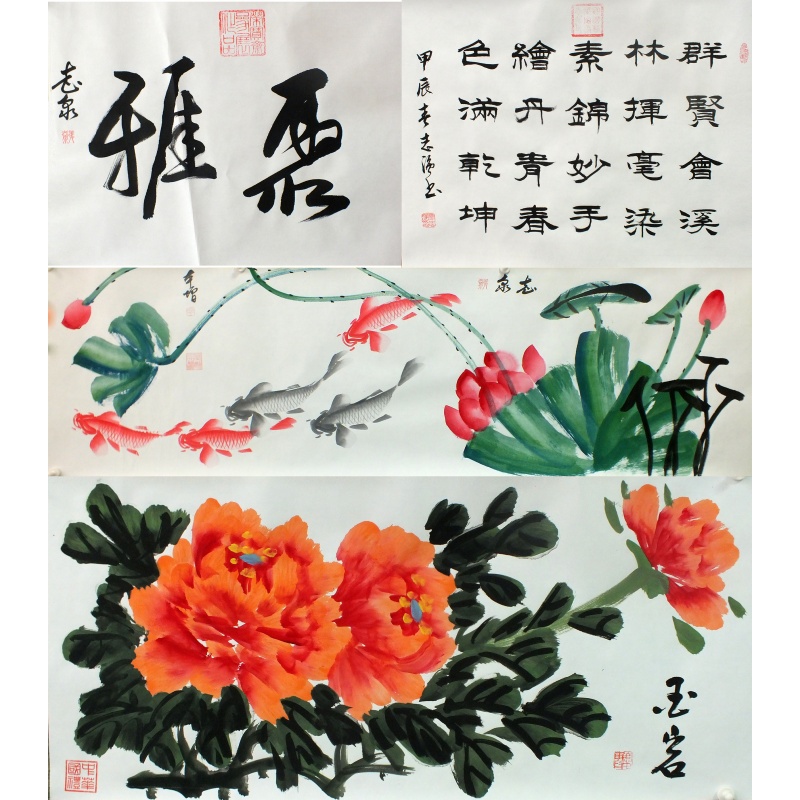 雅
志泉
群賢會溪
林揮毫染
素錦妙手
繪丹青春
色滿乾坤
甲辰春志書
志泉
玉岩